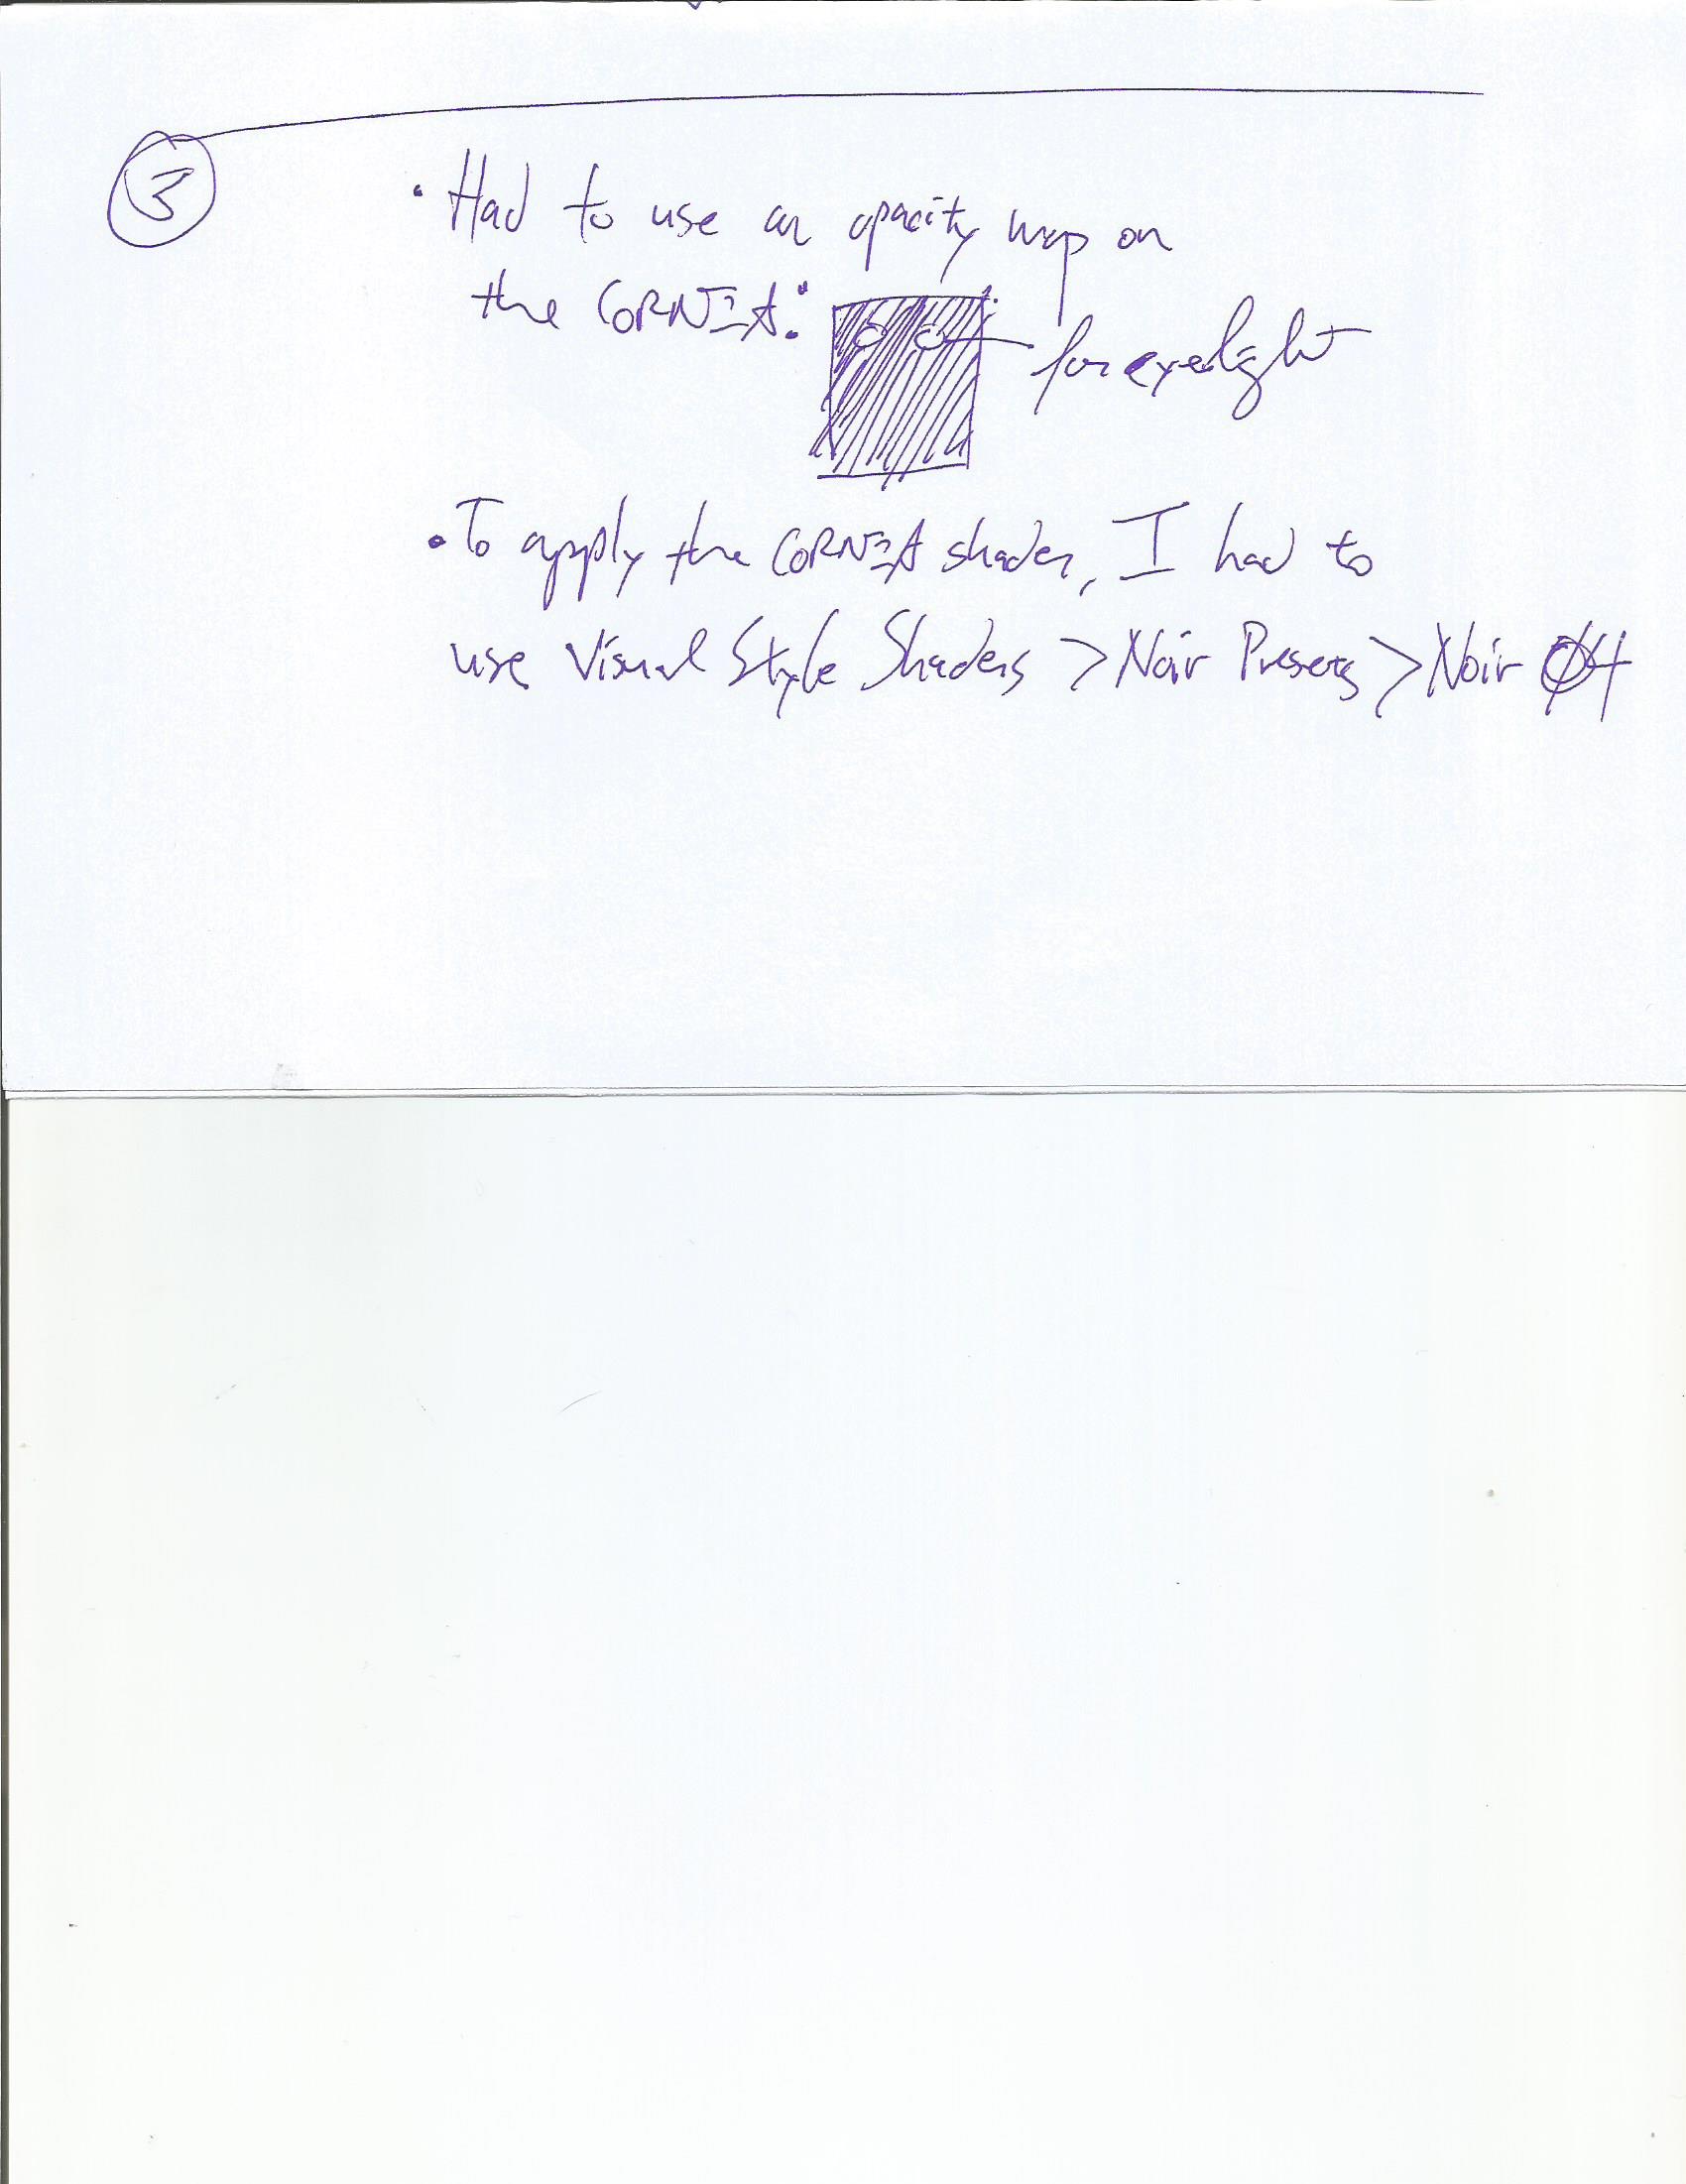 3
• Had to use an opacity map on
the CORNEA:
for eyelight
• To apply the CORNEA shader, I had to
use Visual Style Shaders > Noir Presets > Noir 04